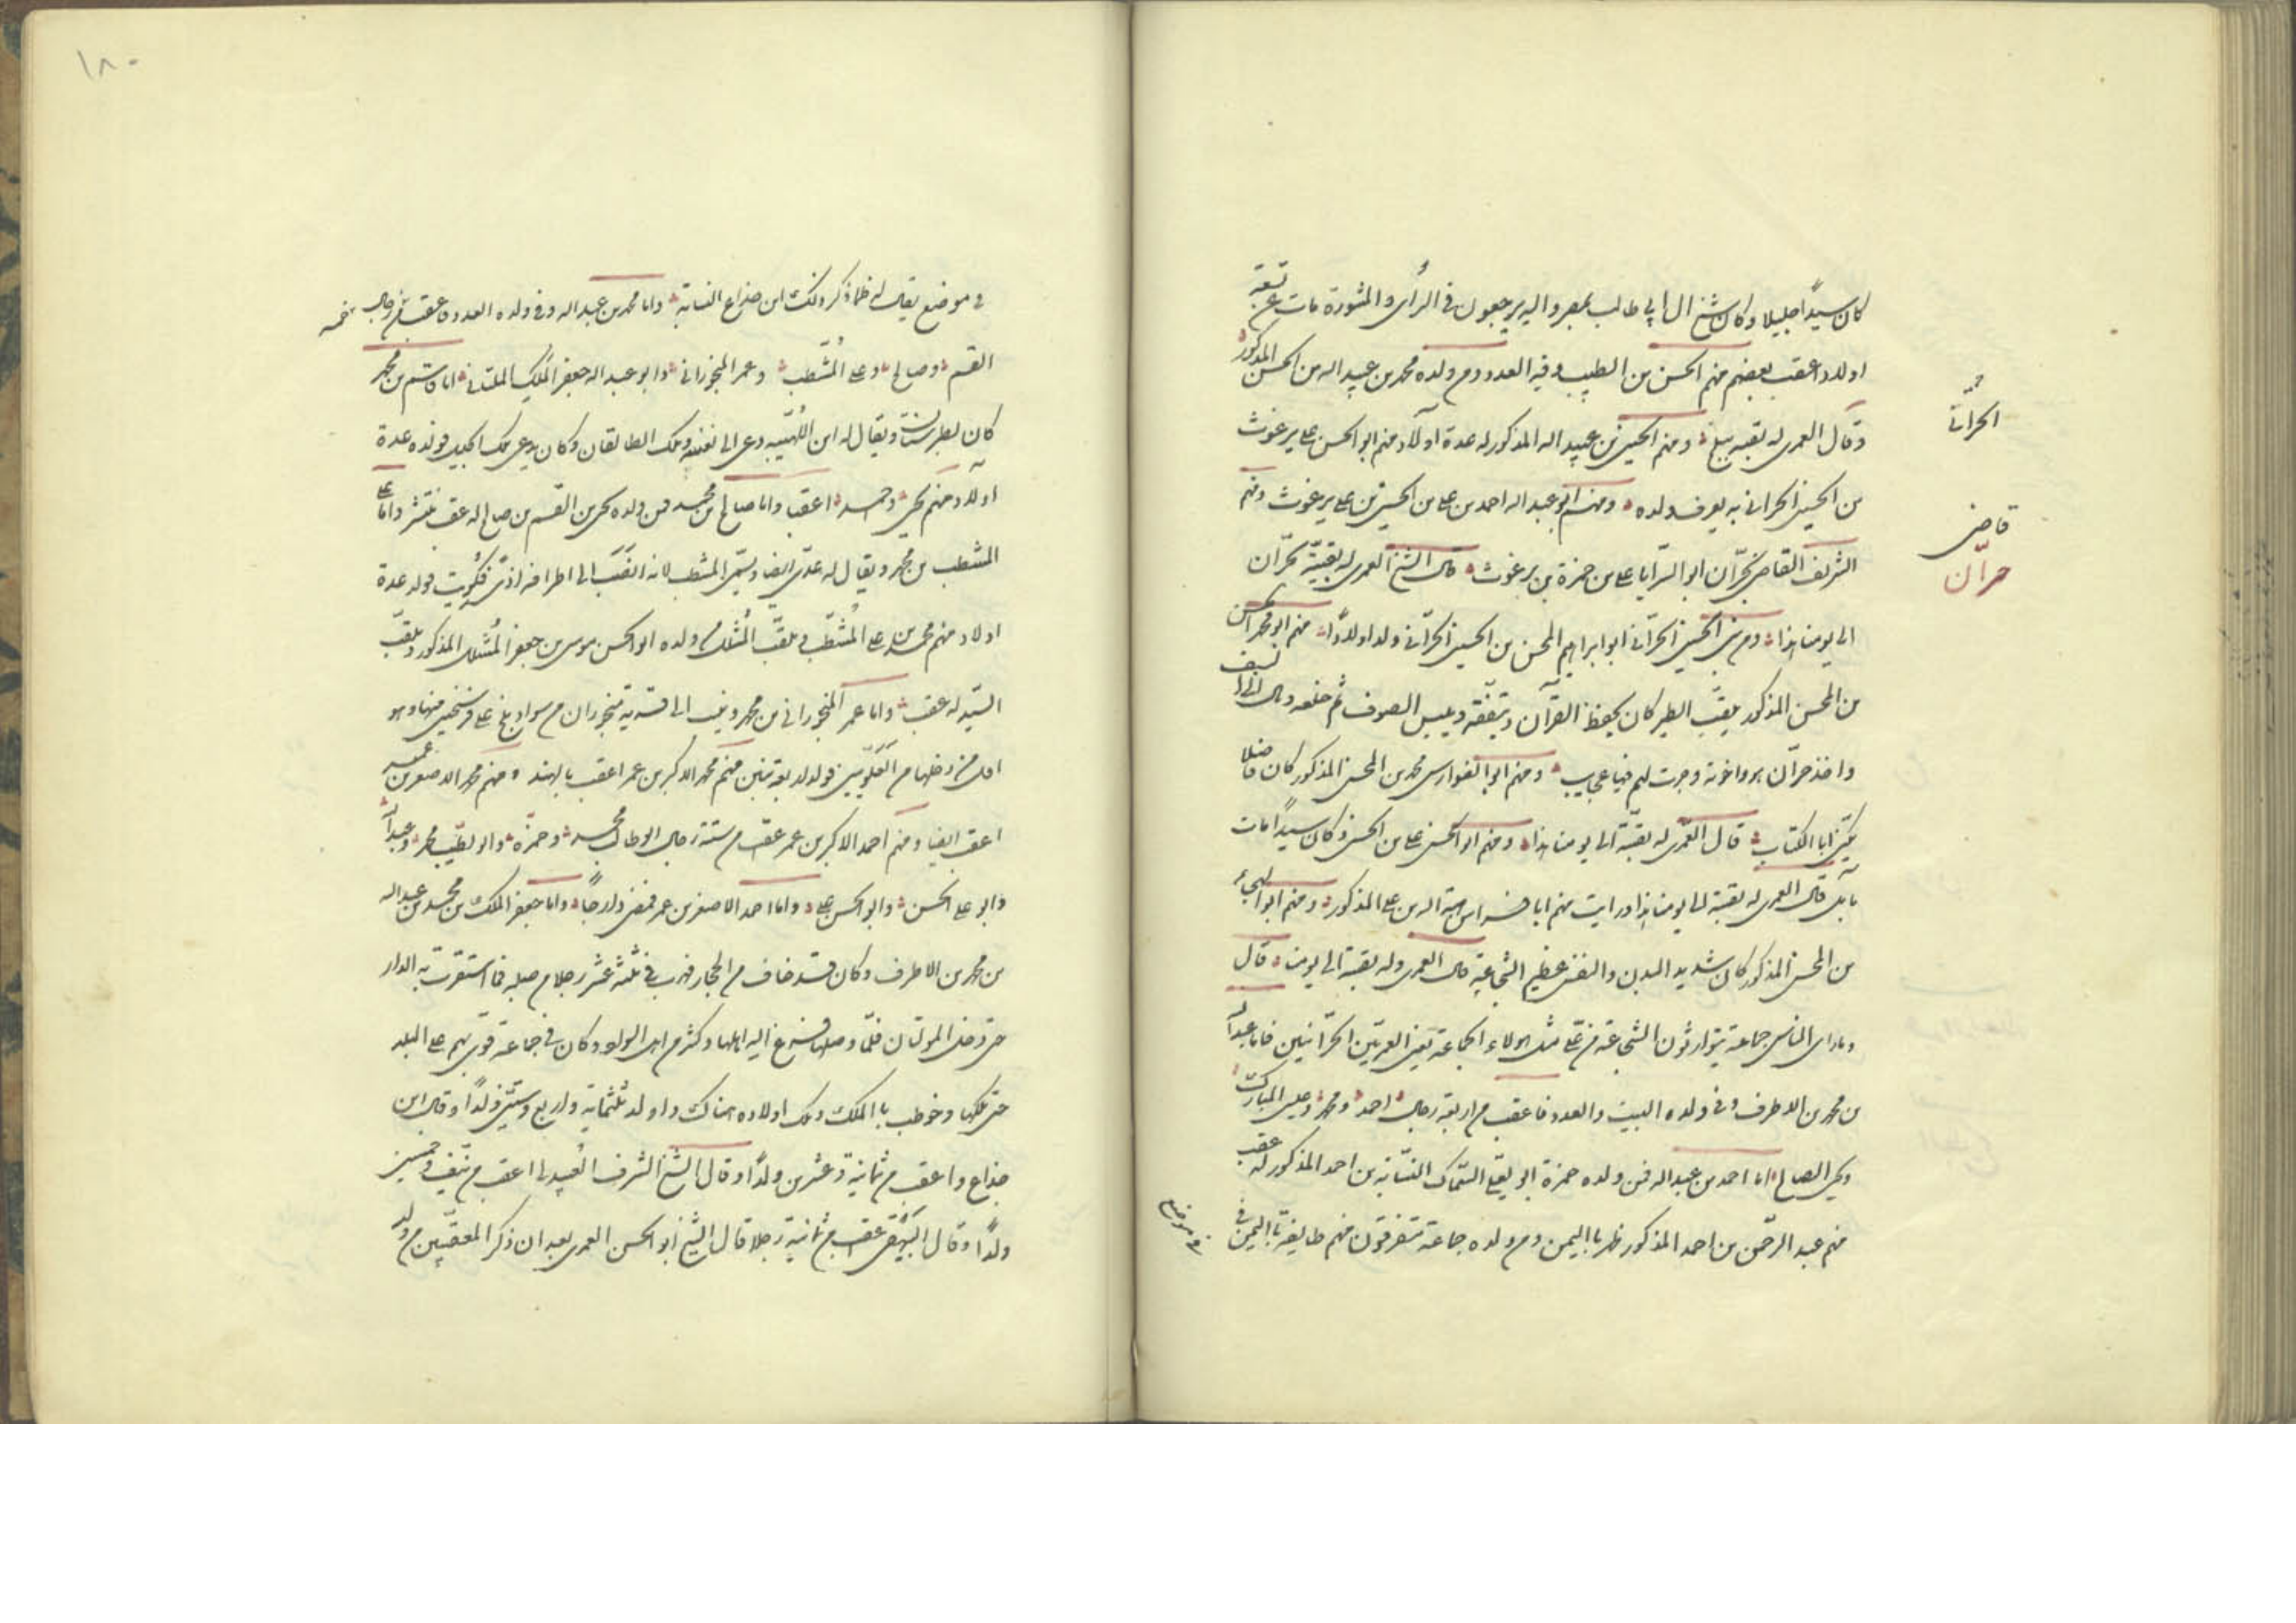 كان سيدًا جليلا وكان شيخ ال ابي طالب بمصر واليه يرجعون في الرأى والمشورة مات عن تسعة
اولاد اعقب بعضهم منهم الحسن بن الطيب وفيه العدد ومن ولده محمد بن عبيد اله من الحسن المذكور
وقال العمرى له بقية ببلخ ومنهم الحسين بن عبيد اله المذكور له عدة اولاد منهم ابو الحسن على برغوث
الحرانى
بن الحسين الحرانى به يعرف ولده ومنهم ابو عبد اله احمد بن على بن الحسين بن على برغوث ومنهم
قاضى حرّان
الشريف القاضى بحرّان ابو السّرايا على بن حمزة بن برغوث قال الشيخ العمرى له بقيّة بحرّان
الى يومنا هذا ومن بنى الحسين الحرّانى ابو ابراهيم المحسن بن الحسين الحرّانى ولد اولادًا منهم ابو محمد الحسن
بن المحسن المذكور يلقّب الطبر كان يحفظ القرآن ويتفقّه ويلبس الصوف ثم خلعه ومال الى السيف
واخذ حرّان هو واخوته وجرت لهم فيها عجايب ومنهم ابو الفوارس محمد بن المحسن المذكور كان فاضلا
يكنى ابا الكتايب قال العمرى له بقيّة الى يومنا هذا ومنهم ابو الحسن على بن المحسن وكان سيدًا مات
بآمد قال العمرى له بقية الى يومنا هذا ورايت منهم ابا فراس هبة اله بن على المذكور ومنهم ابو الهيجاء
بن المحسن المذكور كان شديد البدن والنفس عظيم الشجاعة قال العمرى وله بقية الى يومنا قال
وما راى الناس جماعة يتوارثون الشجاعة من على مثل هولاء الجماعة يعنى العمريّين الحرّانيين فاما عبد اله
بن محمد بن الاطرف وفى ولده البيت والعدد فاعقب من اربعة رجال احمد ومحمد وعيسى المبارك
ويحيى الصالح اما احمد بن عبد اله فمن ولده حمزة ابو يعلى السّماك النسّابة بن احمد المذكور له عقب
منهم عبد الرّحمن بن احمد المذكور ظهر باليمن ومن ولده جماعة متفرقون منهم طايفة باليمن فى
فى موضع
١٨٠
فى موضع يقال له ظما ذكر ذلك ابن خداع النسابة واما محمد بن عبد اله وفى ولده العدد فاعقب من خمسة رجال
القسم وصالح وعلى المُشّطب وعمر المنجورانى وابو عبد اله جعفر المَلِك الملتانى اما قاسم بن محمد
كان بطبرستان ويقال له ابن اللهبيّه دعى الى نفسه وملك الطالقان وكان يدعى ملك الجبل فولده عدة
اولاد منهم يحيى واحمد اعقبا واما صالح بن محمد فمن ولده يحيى بن القسم بن صالح له عقب منتشر واما على
المشطب بن محمد ويقال له عدّى ايضا ويسمّى المشطب لانه انصَبّ الى اطرافه اذىً فكُويت فولد عدة
اولاد منهم محمد بن على المُشطّب ويلقّب المُشلّل من ولده ابو الحسن موسى بن جعفر المُشلل المذكور ويلقّب
السيّد له عقب واما عمر المنجورانى بن محمد وينسب الى قرية منجوران من سواد بلخ على فرسخين منها وهو
اول من دخلها من العَلَويّين فولد ولد بعقبين منهم محمد الاكبر بن عمر اعقب بالهند ومنهم محمد الاصغر بن عمر
اعقب ايضا ومنهم احمد الاكبر بن عمر عقبه من ستة رجال ابو طالب محمد وحمزة وابو الطيّب محمد وعبد اله
وابو على الحسن وابو الحسن على واما احمد الاصغر بن عمر فمضى دارجًا واما جعفر الملك بن محمد بن عبد اله
بن محمد بن الاطرف وكان قد خاف من الحجاز فهرب فى ثلثة عشر رجلا من صلبه فما استقرت به الدار
حتى دخل المولتان فلمّا دخلها فزع اليه اهلها وكثير من اهل السواد وكان فى جماعة قوى بهم على البلد
حتى ملكها وخوطب بالملك وملك اولاده هناك واولد ثلثماية واربع وستين ولدًا وقال ابن
خداع واعقب من ثمانية وعشرين ولدًا وقال الشيخ الشرف العُبيدلى اعقب من نيّف وخمسين
ولدًا وقال البَيْهقى عقبه من ثمانية رجلا قال الشيخ ابو الحسن العمرى بعد ان ذكر المعقّبين من ولد